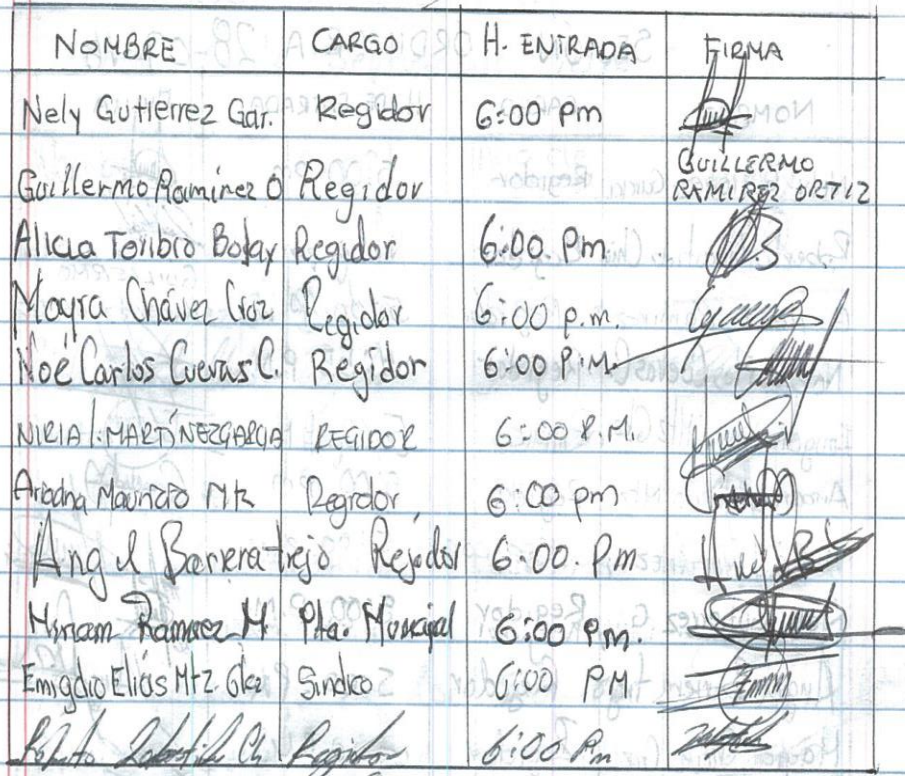 NOMBRE CARGO H. ENTRADA FIRMA
Nely Gutierrez Gar. Regidor 6:00 Pm
Guillermo Ramirez O Regidor GUILLERMO RAMIREZ ORTIZ
Alicia Toribio Regidor 6:00 Pm
Mayra Chávez Cruz Regidor 6:00 p.m.
Noé Carlos Cuevas C. Regidor 6:00 P.M.
NIRIA I. MARTÍNEZ GARCIA REGIDOR 6:00 P.M.
Ariadna Mauricio Mtz Regidor 6:00 pm
Angel Barrera trejo Rejidor 6:00 Pm
Miriam Ramirez M Pta. Municipal 6:00 Pm.
Emigdio Elias Mtz. Glez Sindico 6:00 PM
Roberto Ch. Regidor 6:00 Pm